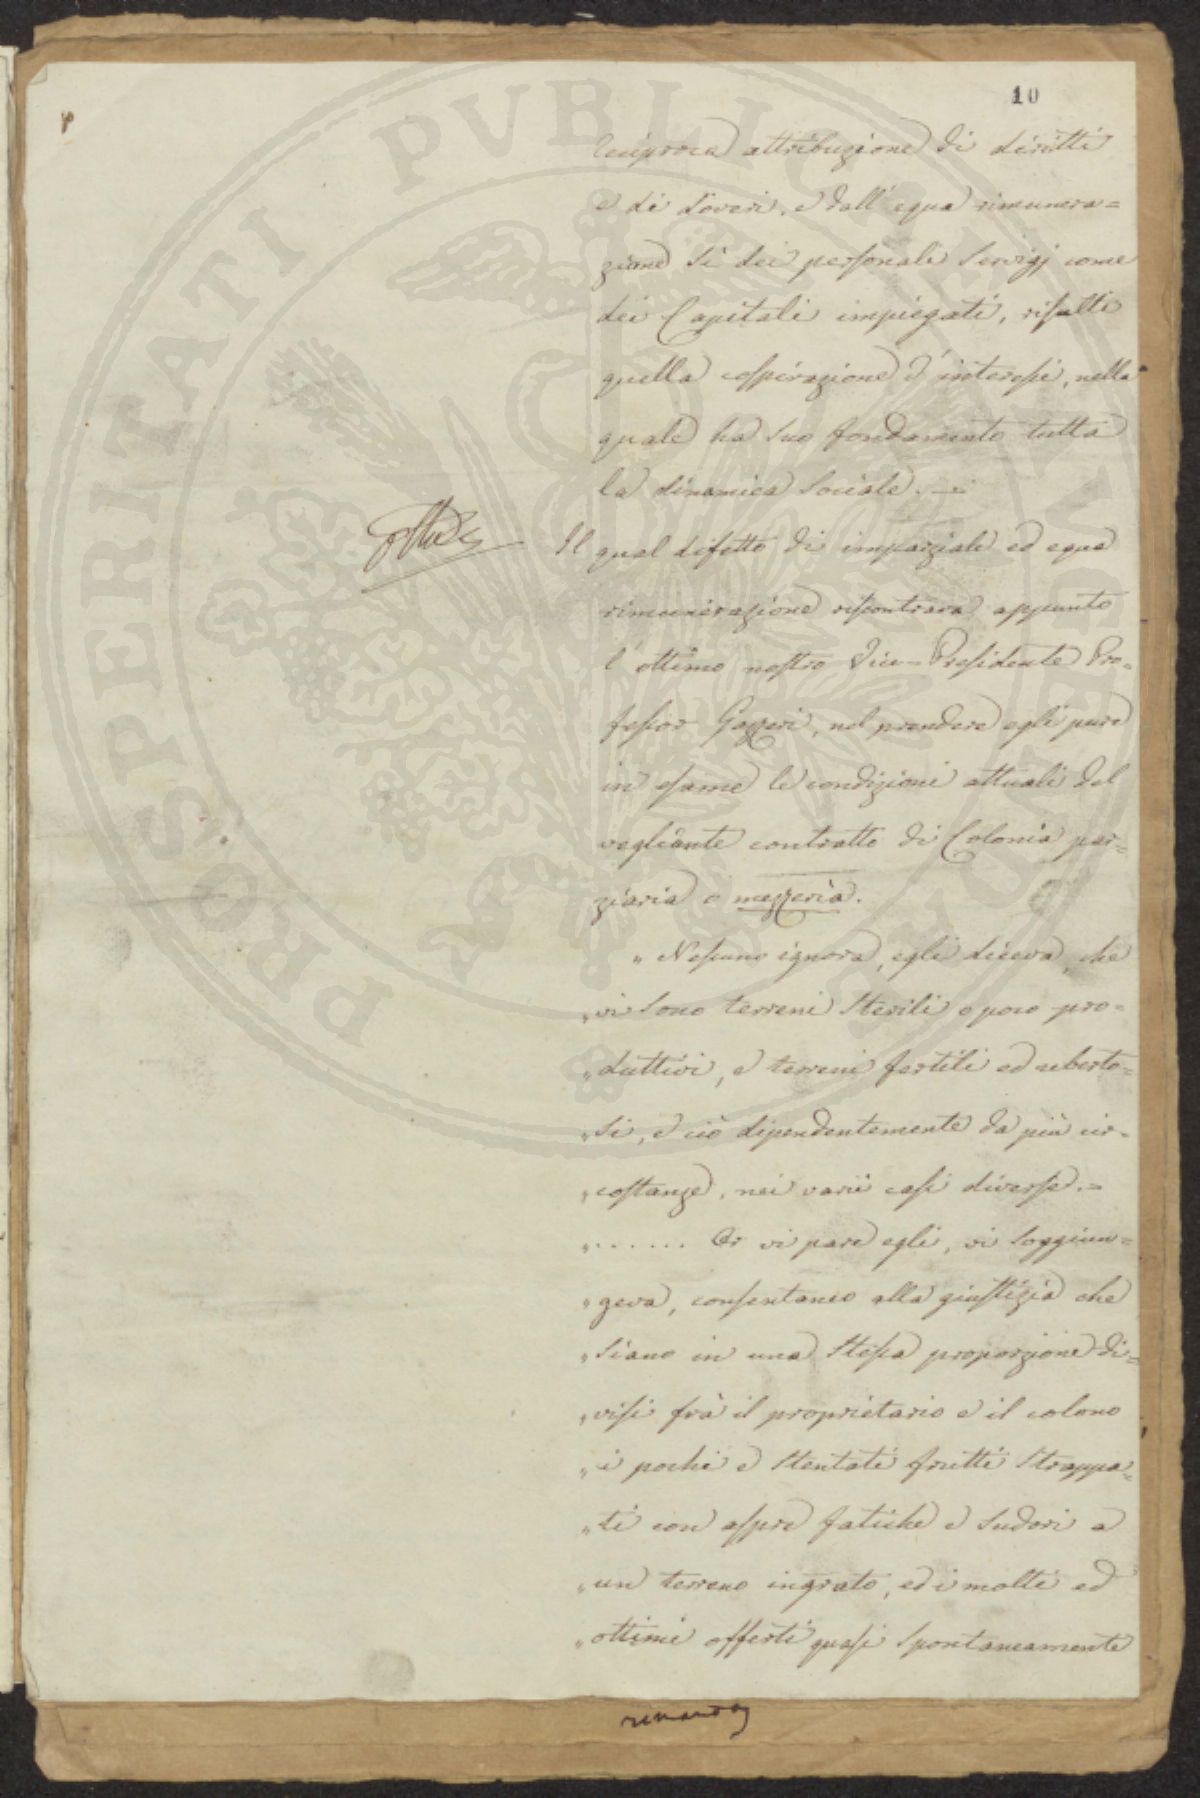 10
reciproca attribuzione di diritti
e di doveri, e dall'equa rimunera=
zione sì dei personali servigj come
dei Capitali impiegati, risulti
quella cospirazione d'interessi, nella
quale ha suo fondamento tutta
la dinamica sociale. —
Il qual difetto di imparziale ed equa
rimunerazione riscontrava appunto
l'ottimo nostro Vice-Presidente Pro=
fessor Gazzeri, nel prendere egli pure
in esame le condizioni attuali del
vegliante contratto di Colonia par=
ziaria o mezzeria.
" Nessuno ignora, egli diceva, che
" vi sono terreni sterili o poco pro=
" duttivi, e terreni fertili ed uberto=
" si, e ciò dipendentemente da più cir=
" costanze, nei varii casi diverse.=
" ...... Or vi pare egli, vi soggiun=
" geva, consentaneo alla giustizia che
" siano in una stessa proporzione di=
" visi frà il proprietario e il colono
" i pochi e stentati frutti strappa=
" ti con aspre fatiche e sudori a
" un terreno ingrato, ed i molti ed
" ottimi offerti quasi spontaneamente
PROSPERITATI PVBLICAE AVGENDAE